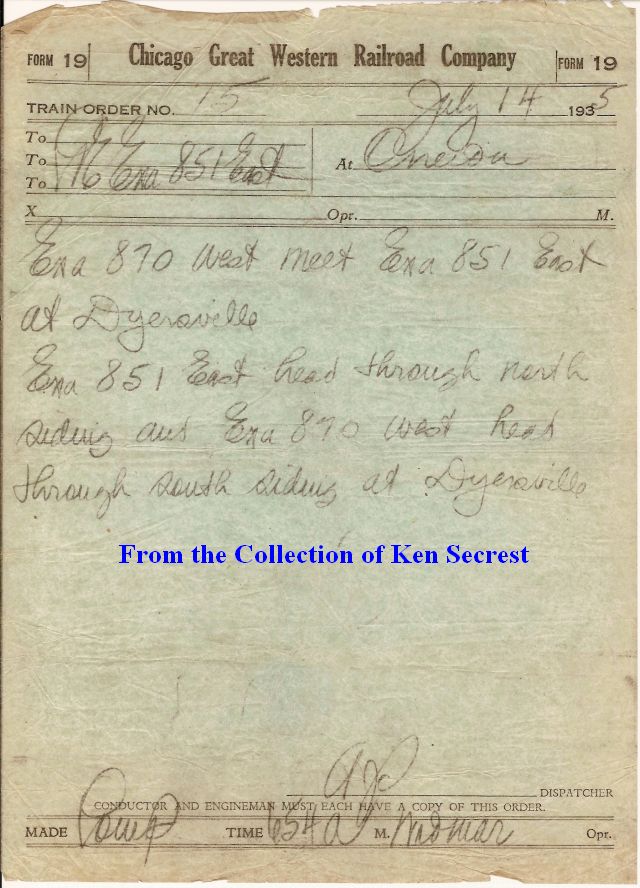 FORM 19 Chicago Great Western Railroad Company FORM 19
TRAIN ORDER NO. 15 July 14 1935
To
To
To C&E Exa 851 East At Oneida
X Opr. M.
Exa 870 West meet Exa 851 East
at Dyersville
Exa 851 East head through north
siding and Exa 870 West head
through south siding at Dyersville
From the Collection of Ken Secrest
DISPATCHER
CONDUCTOR AND ENGINEMAN MUST EACH HAVE A COPY OF THIS ORDER.
MADE Comp TIME 654 a M. Widmar Opr.